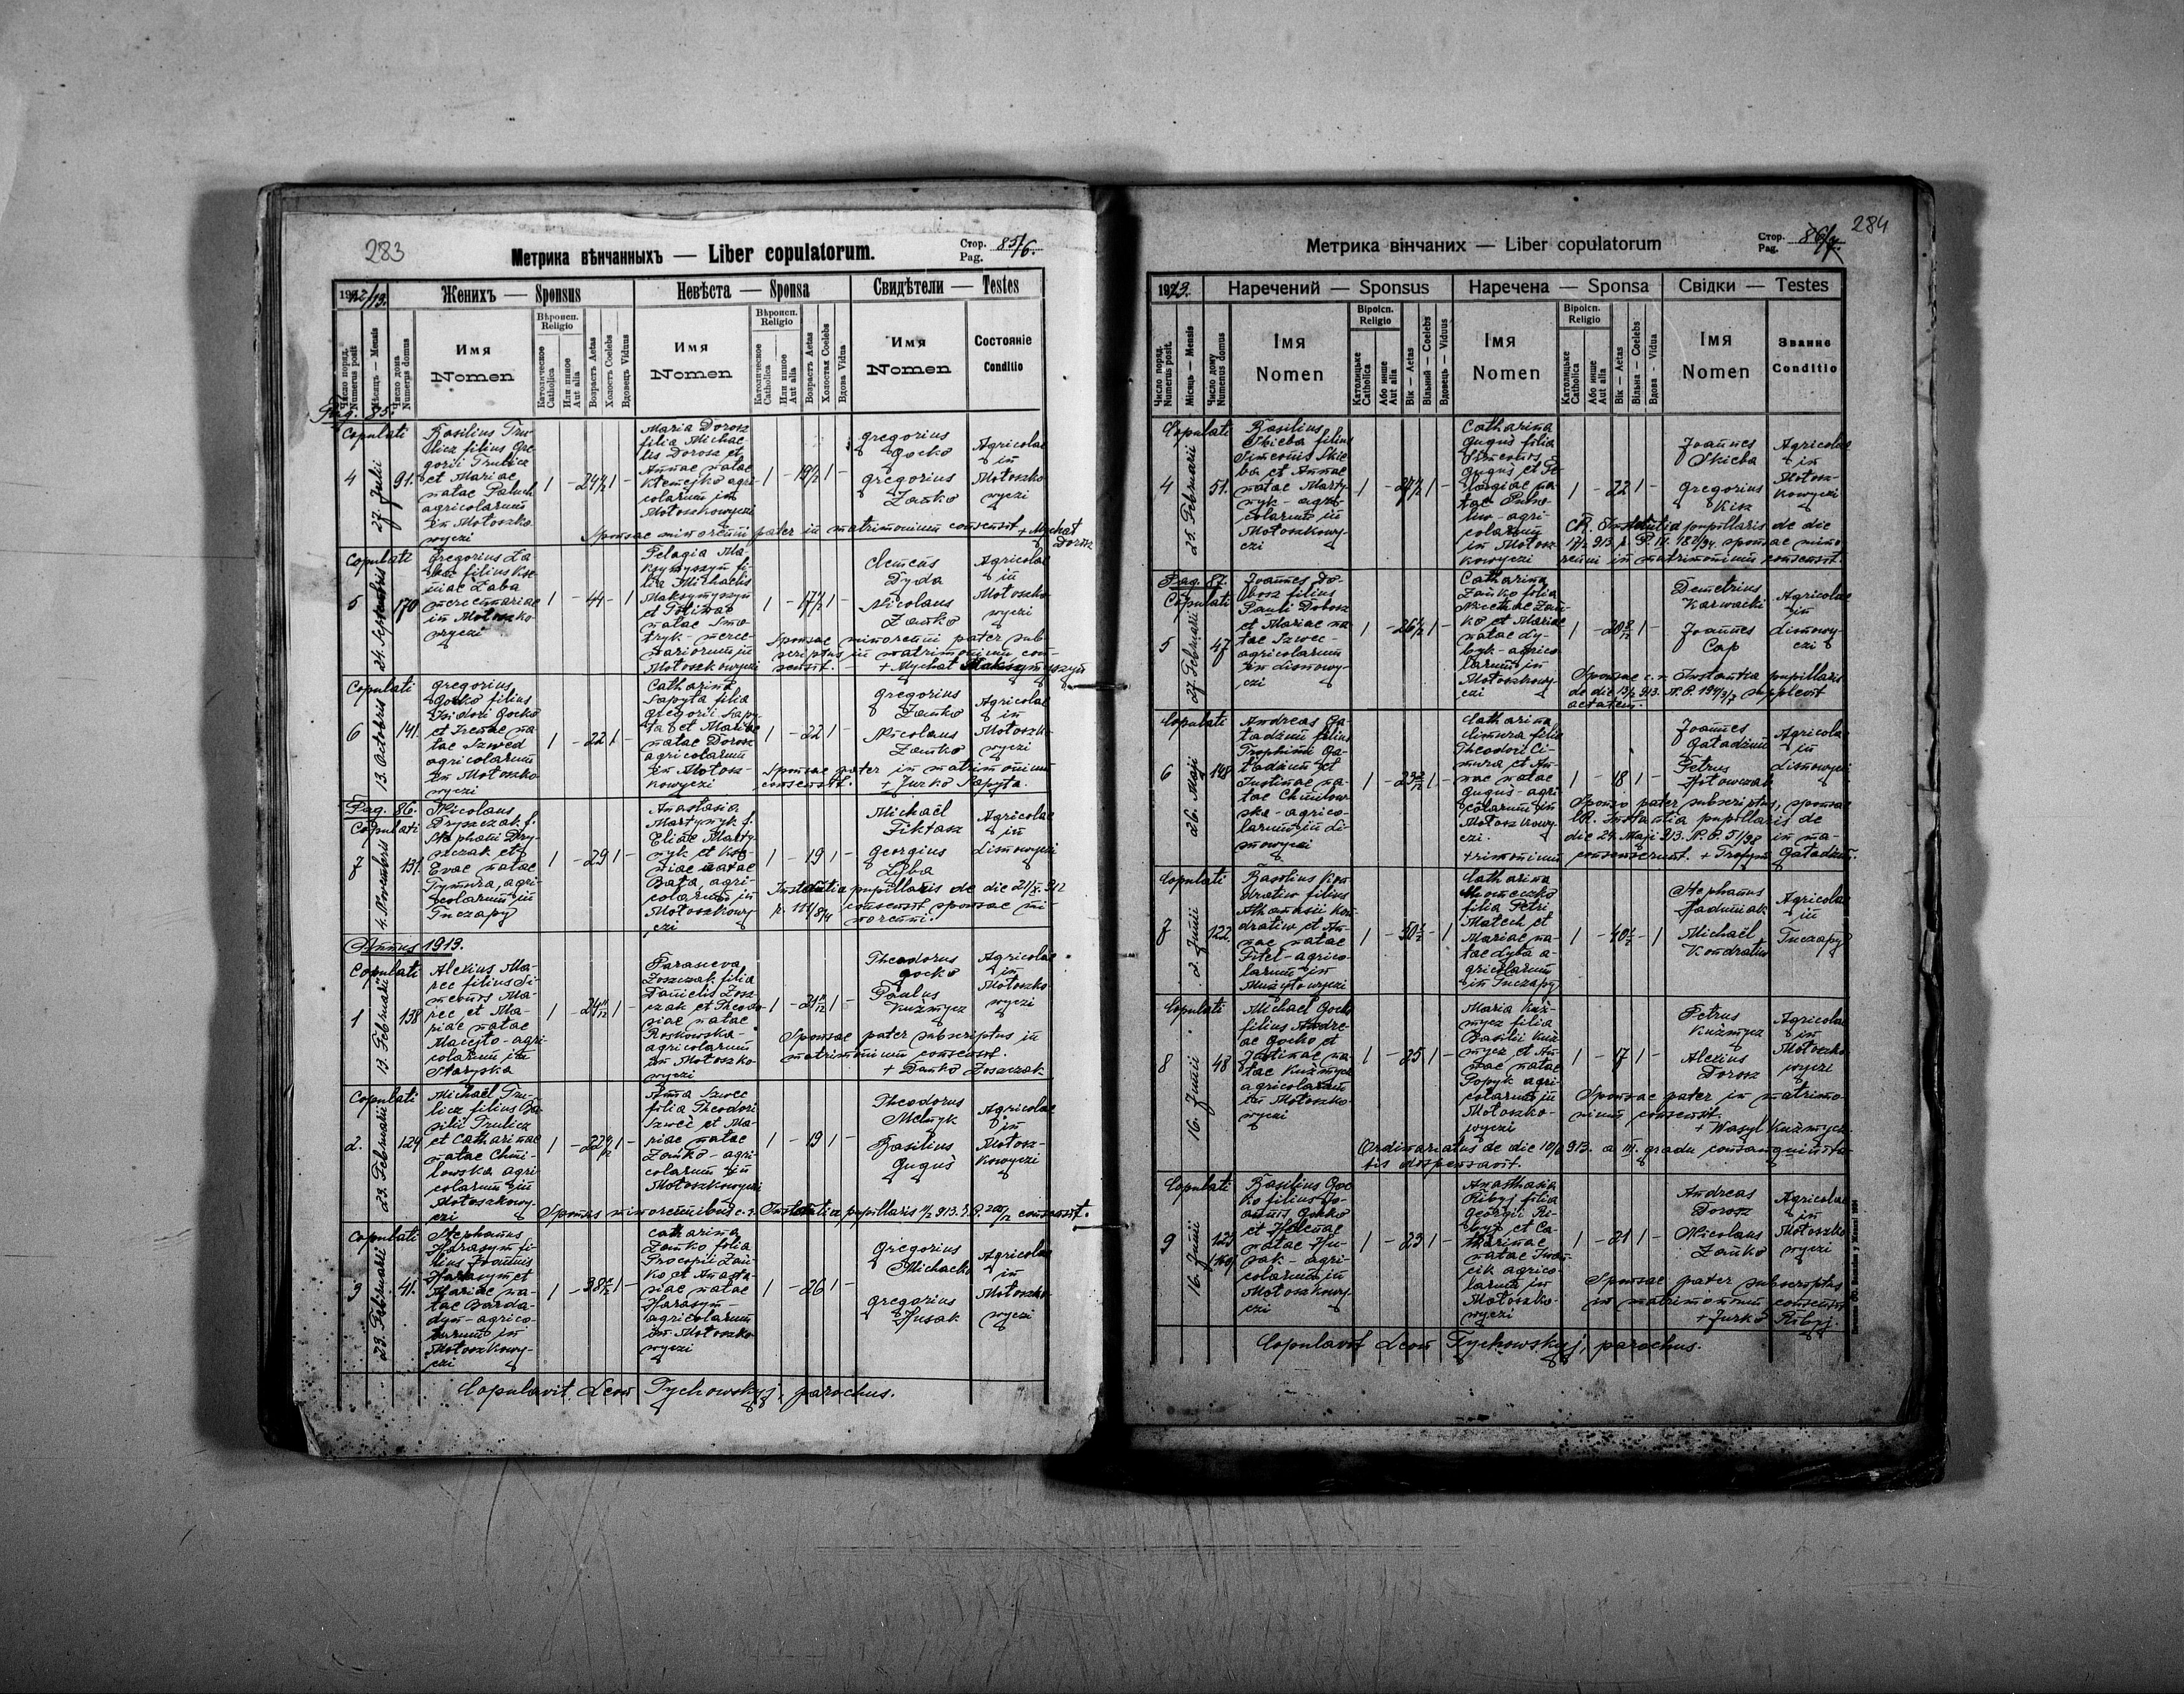 283
Метрика вѣнчанныхъ — Liber copulatorum.
Стор. Pag. 85/6.
1912/13.
Женихъ — Sponsus
Невѣста — Sponsa
Свидѣтели — Testes
Число поряд. Numerus posit
Мѣсяцъ — Mensis
Число дома Numerus domus
Имя Nomen
Вѣроисп. Religio
Католическое Catholica
Или иное Aut alia
Возрастъ Aetas
Холостъ Coelebs
Вдовецъ Viduus
Имя Nomen
Вѣроисп. Religio
Католическое Catholica
Или иное Aut alia
Возрастъ Aetas
Холостая Coelebs
Вдова Vidua
Имя Nomen
Состояніе Conditio
Pag. 85.
Copulati
4
27. Julii
91.
Basilius Tru-
licz filius Gre-
gorii Trulicz
et Mariae
natae Paluch
agricolarum
in Mołoszko-
wyczi
1 -
1 -
Maria Dorosz
filia Michae-
lis Dorosz et
Annae natae
agri-
colarum in
Mołoszkowyczi
1 -
1 -
Gregorius
Gocko
Gregorius
Zańko
Agricolae
in
Mołoszko
wyczi
Sponsae minorenni pater in matrimonium consensit + Mychał
Dorosz
Copulati
5
24. Septembris
170
Gregorius Ża-
ba filius Kse-
niae Żaba
mercenariae
in Mołoszko-
wyczi
1 - 44 - 1
Pelagia Ma-
ksymyszyn fi-
lia Michaelis
Maksymyszyn
et
natae Smo-
tryk - merce-
nariorum in
Mołoszkowyczi
1 -
1 -
Clemens
Dyda
Nicolaus
Zańko
Agricolae
in
Mołoszko
wyczi
Sponsae minorenni pater sub-
scriptus in matrimonium con-
sensit. - + Mychał Maksymyszyn
Copulati
6
13. Octobris
141.
Gregorius
Gocko filius
Isidori Gocko
et Irenae na-
tae Szwed
agricolarum
in Mołoszko-
wyczi
1 - 22 1 -
Catharina
Sapyta filia
Gregorii Sapy-
ta et Mariae
natae Dorosz
agricolarum
in Mołosz-
kowyczi
1 - 22 1 -
Gregorius
Zańko
Nicolaus
Zańko
Agricolae
in
Mołoszko
wyczi
Sponsae pater in matrimonium
consensit. + Jurko Sapyta.
Pag. 86.
Copulati
7
4. Novembris
131.
Nicolaus
Dryszczak f.
Stephani Dry-
szczak et
Evae natae
Tymura, agri-
colarum in
Tuczapy
1 - 29 1 -
Anastasia
Martynyk f.
Eliae Marty-
nyk et Kse-
niae natae
Bata, agri-
colarum in
Mołoszkowy-
czi
1 - 19 1 -
Michaël
Fiktasz
Georgius
Agricolae
in
Lisnowyczi
Instantia pupillaris de die
consensit sponsae mi-
norenni.
Annus 1913.
Copulati
1
13. Februarii
138
Alexius Ma-
rec filius Si-
meonis Ma-
rec et Ma-
riae natae
Macejto - agri-
colarum in
Staryska
1 -
1 -
Parasceva
Zoszczak filia
Danielis Zosz-
czak et Theodo-
siae natae
Roskowska -
agricolarum
in Mołoszko-
wyczi
1 -
1 -
Theodorus
Gocko
Paulus
Kuźmycz
Agricolae
in
Mołoszko
wyczi
Sponsae pater subscriptus in
matrimonium consensit.
+ Dańko Zoszczak
Copulati
2.
23. Februarii
124
Michaël Tru-
licz filius Ba-
silii Trulicz
et Catharinae
natae Chmi-
lowska agri-
colarum in
Mołoszkowy-
czi
1 -
1 -
Anna Szwec
filia Theodori
Szwec et Ma-
riae natae
Zańko - agri-
colarum in
Mołoszkowyczi
1 - 19 1 -
Theodorus
Melnyk
Basilius
Guguś
Agricolae
in
Mołosz-
kowyczi
Sponsis minorennibus c. r. Instantia pupillaris consensit.
Copulati
3
23. Februarii
41.
Stephanus
Harasym fi-
lius Joannis
Harasym et
Mariae na-
tae Barda-
dyn - agrico-
larum in
Mołoszkowy-
czi
1 -
1 -
Catharina
Zańko filia
Procopii Zań-
ko et Anasta-
siae natae
Harasym -
agricolarum
in Mołoszko-
wyczi
1 - 26 1 -
Gregorius
Michacko
Gregorius
Husak
Agricolae
in
Mołoszko
wyczi
Copulavit Leon Tychowskyj, parochus.
284
Метрика вінчаних — Liber copulatorum
Стор. Pag. 86/7.
1913.
Наречений — Sponsus
Наречена — Sponsa
Свідки — Testes
Число поряд. Numerus posit.
Місяць — Mensis
Число дому Numerus domus
Імя Nomen
Віроісп. Religio
Католицьке Catholica
Або инше Aut alia
Вік — Aetas
Вільний — Coelebs
Вдовець — Viduus
Імя Nomen
Віроісп. Religio
Католицьке Catholica
Або инше Aut alia
Вік — Aetas
Вільна — Coelebs
Вдова — Vidua
Імя Nomen
Званнє Conditio
Copulati
4
25. Februarii
51.
Basilius
Skieba filius
Simeonis Skie-
ba et Annae
natae Marty-
nyk - agri-
colarum in
Mołoszkowy-
czi
1 -
1 -
Catharina
Guguś filia
Simeonis
Guguś et Pe-
lagiae na-
tae
agri-
colarum
in Mołosz-
kowyczi
1 - 22 1 -
Joannes
Skieba
Gregorius
Kisz
Agricolae
in
Mołosz-
kowyczi
CR. Instantia pupillaris de die
sponsae mino-
renni in matrimonium consensit.
Pag. 87.
Copulati
5
27. Februarii
47
Joannes Do-
bosz filius
Pauli Dobosz
et Mariae na-
tae Szwec -
agricolarum
in Lisnowy-
czi
1 -
1 -
Catharina
Zańko filia
Nicetae Zań-
ko et Mariae
natae Dy-
byk - agrico-
larum in
Mołoszkowy-
czi
1 -
1 -
Demetrius
Karwacki
Joannes
Cap
Agricolae
in
Lisnowy-
czi
Sponsae c. r. Instantia pupillaris
de die supplent
aetatem.
Copulati
6
26. Maji
148
Andreas Ga-
tadzun filius
Trophimi Ga-
tadzun et
Justinae na-
tae Chmilow-
ska - agrico-
larum in Li-
snowyczi
1 -
1 -
Catharina
Cimura filia
Theodori Ci-
mura et An-
nae natae
Guguś - agri-
colarum in
Mołoszkowy-
czi.
1 - 18 1 -
Joannes
Gatadzun
Petrus
Agricolae
in
Lisnowyczi
Sponso pater subscriptus, sponsae
CR. Instantia pupillaris de
die 24. Maji 913. in ma-
trimonium consenserunt. + Trofym Gatadzun.
Copulati
7
2. Junii
122.
Basilius Kon-
dratiw filius
Athanasii Kon-
dratiw et An-
nae natae
Fitel - agrico-
larum in
1 -
- 1
Catharina
filia Petri
Matech et
Mariae na-
tae Dyba a-
gricolarum
in Tuczapy
1 -
- 1
Stephanus
Hadmiak
Michaël
Kondratiw
Agricolae
in
Tuczapy
Copulati
8
16. Junii
48
Michaël Gocko
filius Andre-
ae Gocko et
Justinae na-
tae Kuźmycz
agricolarum
in Mołoszko-
wyczi
1 - 25 1 -
Maria Kuź-
mycz filia
Basilii Kuź-
mycz et An-
nae natae
Popyk agri-
colarum in
Mołoszko-
wyczi
1 - 17 1 -
Petrus
Kuźmycz
Alexius
Dorosz
Agricolae
in
Mołoszko
wyczi
Sponsae pater in matrimo-
nium consensit.
+ Wasyl Kuźmycz
Ordinariatus de die 10/6 913. a III. gradu consanguinita-
tis dispensavit.
Copulati
9
16. Junii
Basilius Goc-
ko filius Jo-
annis Gocko
et Helenae
natae Hu-
sak - agri-
colarum in
Mołoszkowy-
czi
1 - 23 1 -
Anasthasia
Ribyj filia
Georgii Ri-
byj et Ca-
tharinae
natae Iwań-
cik agrico-
larum in
Mołoszko-
wyczi
1 - 21 1 -
Andreas
Dorosz
Nicolaus
Zańko
Agricolae
in
Mołoszko
wyczi
Sponsae pater subscriptus
in matrimonium consensit
+ Jurko Ribyj.
Copulavit Leon Tychowskyj, parochus.